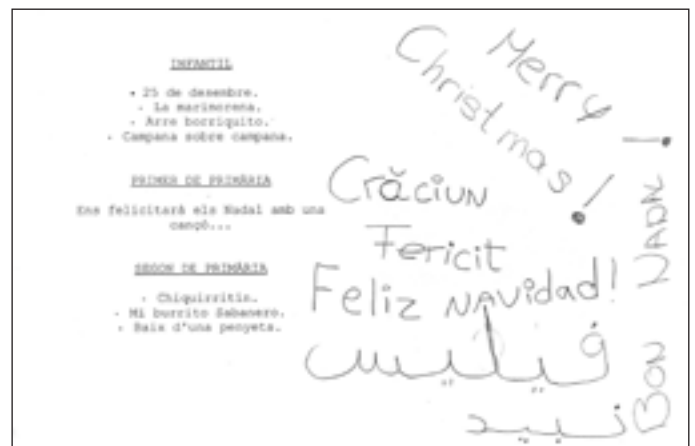 INFANTIL
• 25 de desembre.
- La marimorena.
- Arre borriquito.
- Campana sobre campana.
PRIMER DE PRIMÀRIA
Ens felicitarà els Nadal amb una
cançó...
SEGON DE PRIMÀRIA
- Chiquirritin.
- Mi burrito Sabanero.
- Baix d'una penyeta.
Merry
Christmas!
Crăciun
Fericit
Feliz NAVidad!
فيليس
نبيد
BON NADAL!